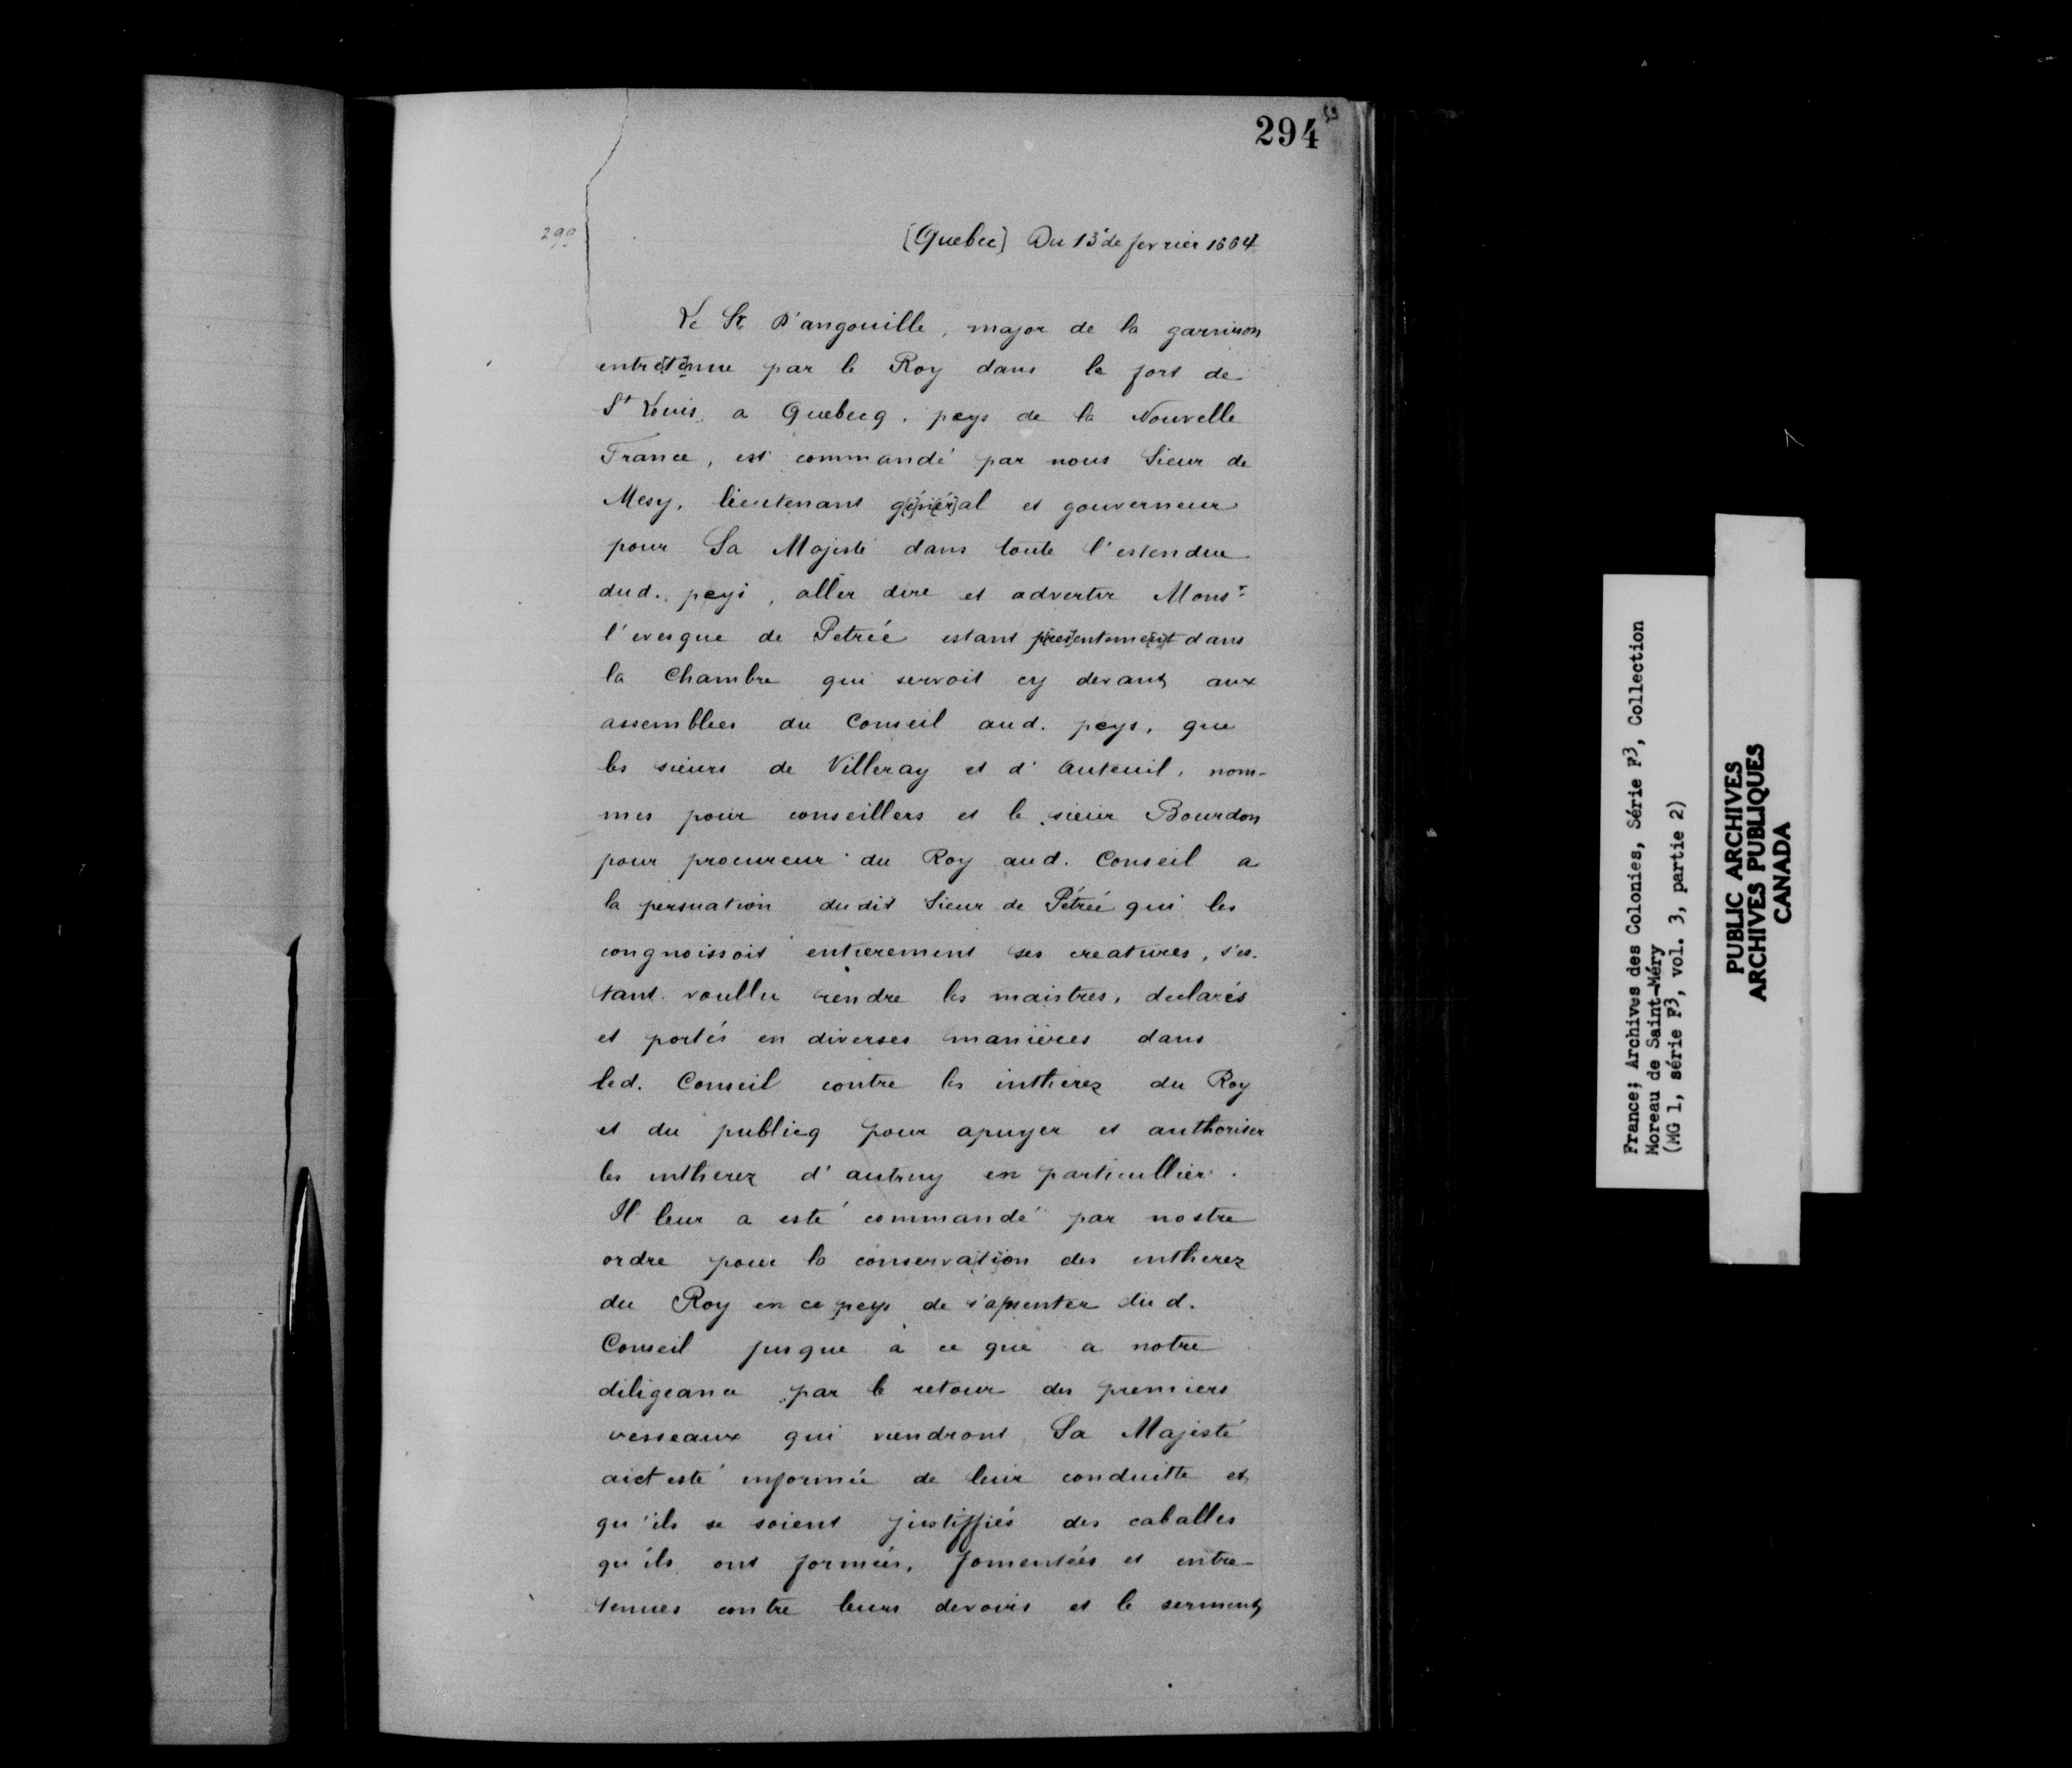 294
299
[Quebec] Du 13e de fevrier 1664
Le Sr D'angouille, major de la garnison
entretenue par le Roy dans le fort de
St Louis a Quebecq, peys de la Nouvelle
France, est commandé par nous Sieur de
Mesy, lieutenant g[énér]al et gouverneur
pour Sa Majesté dans toute l'estendue
dud. peys, aller dire et advertir Monsr
l'evesque de Petrée estant p[rés]entem[en]t dans
la Chambre qui servoit cy devant aux
assemblees du Conseil aud. peys, que
les sieurs de Villeray et d'Auteuil, nom-
mes pour conseillers et le sieur Bourdon
pour procureur du Roy aud. Conseil a
la persuation dudit Sieur de Pétrée qui les
congnoissoit entierement ses creatures, s'es-
tant voullu rendre les maistres, declarés
et portés en diverses manières dans
led. Conseil contre les inthérez du Roy
et du publicq pour apuyer et authoriser
les intherez d'autruy en particullier.
Il leur a esté commandé par nostre
ordre pour la conservation des intherez
du Roy en ce peys de s'apsenter dud.
Conseil jusque à ce que a notre
diligeance par le retour des premiers
vesseaux qui viendront Sa Majesté
aict esté informée de leur conduitte et
qu'ils se soient justiffiés des caballes
qu'ils ont formées, fomentées et entre-
tenues contre leurs devoirs et le serment
France; Archives des Colonies, Série F3, Collection
Moreau de Saint-Méry
(MG 1, série F3, vol. 3, partie 2)
PUBLIC ARCHIVES
ARCHIVES PUBLIQUES
CANADA